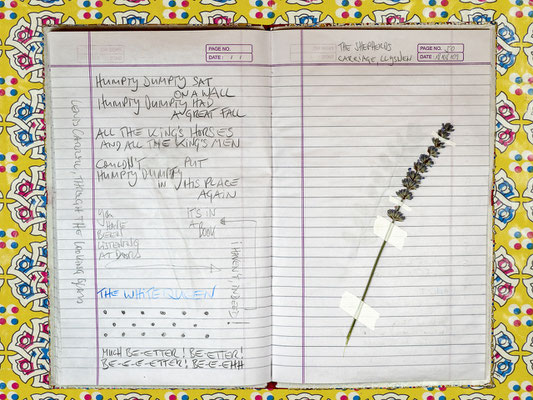 PAGE NO.
DATE:
HUMPTY DUMPTY SAT
ON A WALL
HUMPTY DUMPTY HAD
A GREAT FALL
ALL THE KING'S HORSES
AND ALL THE KING'S MEN
COULDN'T PUT
HUMPTY DUMPTY
IN HIS PLACE
AGAIN
YOU
HAVE
BEEN
LISTENING
AT DOORS
IT'S IN
A BOOK
I HAVEN'T, INDEED!
LEWIS CARROLL, THROUGH THE LOOKING GLASS
THE WHITE QUEEN
MUCH BE-ETTER! BE-ETTER!
BE-E-E-ETTER! BE-E-EHH
THE SHEPHERDS
CARRIAGE, LLYSWEN
PAGE NO.
DATE: